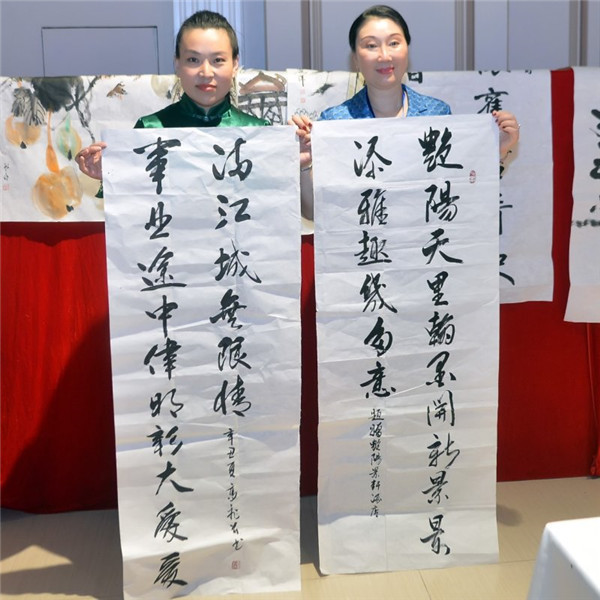 艷陽天里翰墨開新景景
添雅趣幾多意
事业途中偉明彰大愛愛
滿江城無限情
辛丑夏